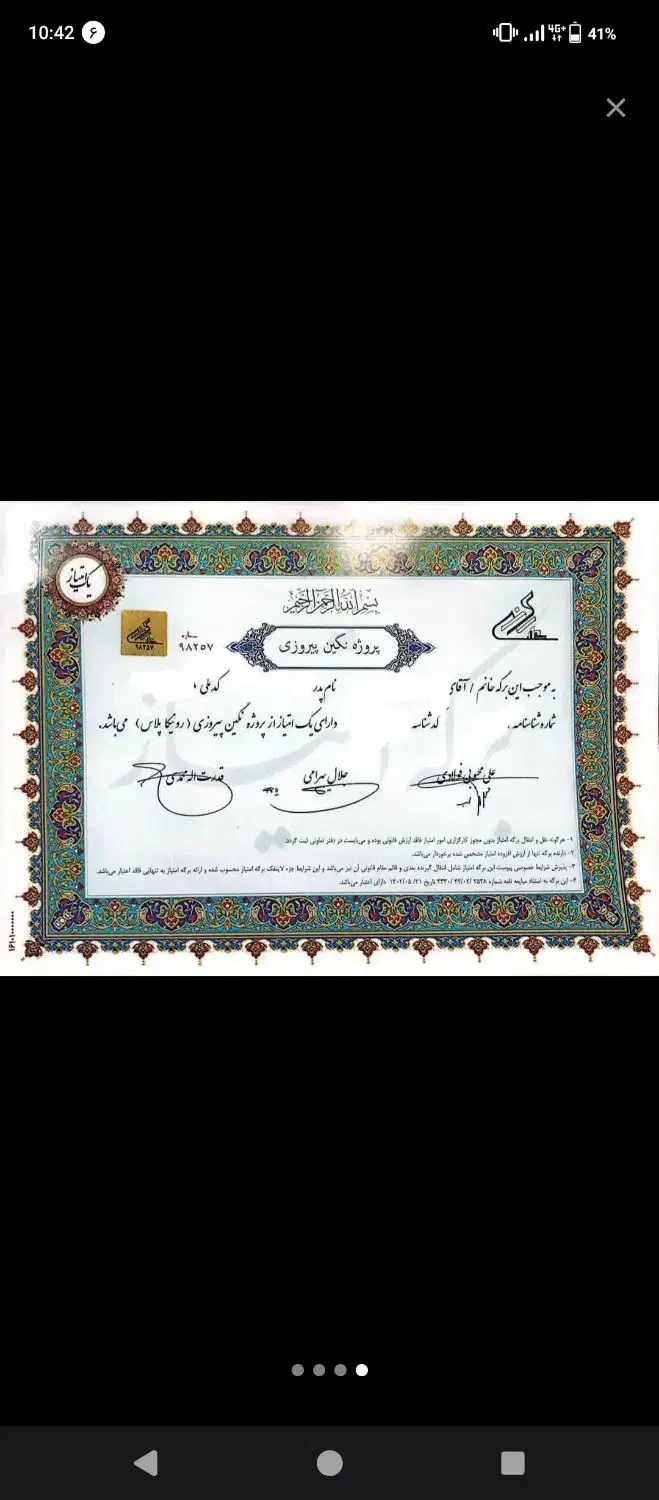 10:42 ۶ 4G+ 41%
یک امتیاز
بسم الله الرحمن الرحیم
شماره
۹۸۲۵۷
۹۸۲۵۷
پروژه نگین پیروزی
به موجب این برگه خانم / آقای نام پدر کد ملی
شماره شناسنامه کد شناسه دارای یک امتیاز از پروژه نگین پیروزی (رونیکا پلاس) می‌باشد.
علی محبوبی فولادی جلال بهرامی قدرت اله محمدی
برگه امتیاز
۱- هرگونه نقل و انتقال برگه امتیاز بدون مجوز کارگزاری امور امتیاز فاقد ارزش قانونی بوده و می‌بایست در دفتر تعاونی ثبت گردد.
۲- دارنده برگه تنها از ارزش افزوده امتیاز مشخص شده برخوردار می‌باشد.
۳- پذیرش شرایط خصوصی پیوست این برگه امتیاز شامل انتقال گیرنده بعدی و قائم مقام قانونی آن نیز می‌باشد و این شرایط جزء لاینفک برگه امتیاز محسوب شده و ارائه برگه امتیاز به تنهایی فاقد اعتبار می‌باشد.
۴- این برگه به استناد مبایعه نامه شماره ۲۵۲۸ /۴۹/۰۲ /۴۳۳۰ تاریخ ۱۴۰۲/۰۵/۲۱ دارای اعتبار می‌باشد.